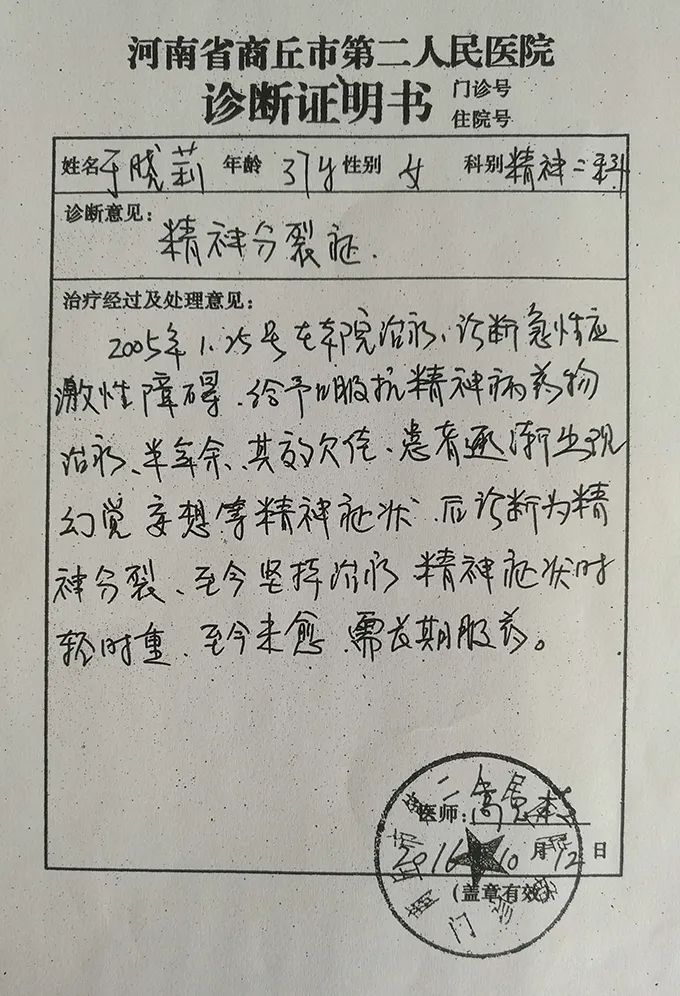 河南省商丘市第二人民医院
诊断证明书 门诊号
住院号
姓名 于晓莉 年龄 37岁 性别 女 科别 精神二科
诊断意见：
精神分裂症.
治疗经过及处理意见：
2005年1.25号在本院治疗、诊断急性应
激性障碍.给予口服抗精神病药物
治疗、半年余、其效欠佳、患者逐渐出现
幻觉妄想等精神症状.后诊断为精
神分裂、至今坚持治疗 精神症状时
轻时重.至今未愈.需长期服药。
医师：
2016 10月12日
（盖章有效）